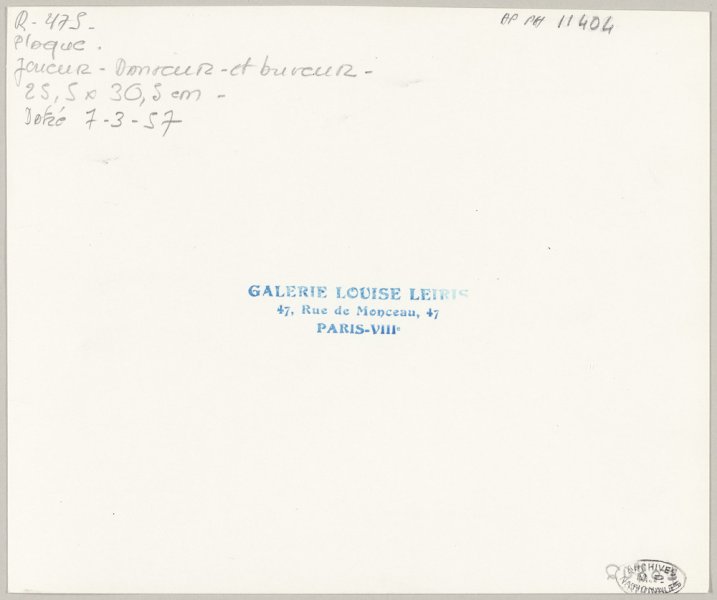 R-475-
AP PH 11404
Plaque.
Joueur-Danseur-et buveur-
25,5 x 30,5 cm -
Daté 7-3-57
GALERIE LOUISE LEIRIS
47, Rue de Monceau, 47
PARIS-VIIIe
ARCHIVES
NATIONALES